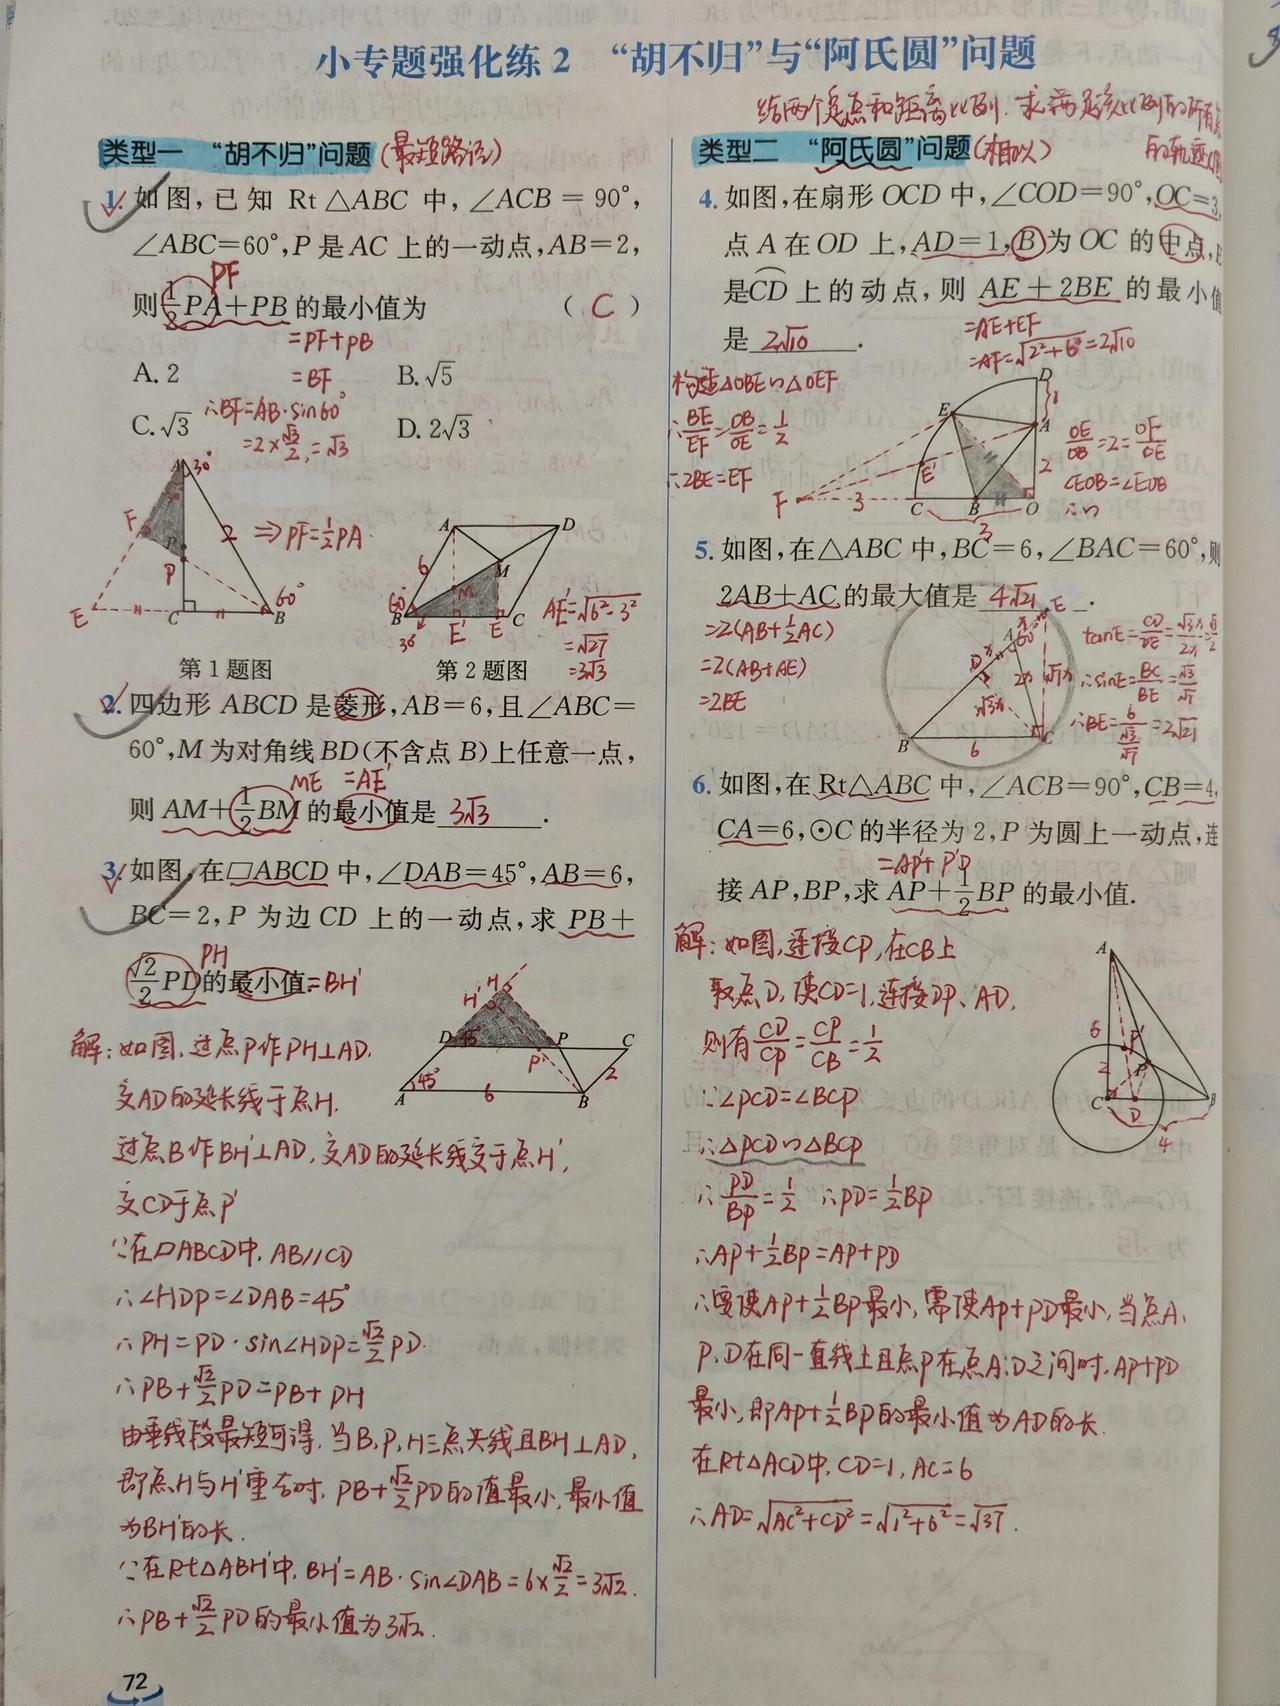 小专题强化练2 “胡不归”与“阿氏圆”问题
给两个定点和距离比例，求满足该比例的所有点
的轨迹
类型一 “胡不归”问题(最短路径)
1. 如图,已知 Rt △ABC 中,∠ACB = 90°,
∠ABC=60°,P 是 AC 上的一动点,AB=2,
PF
则 1/2 PA+PB 的最小值为 ( C )
=PF+PB
A. 2 B. √5
=BF
C. √3 D. 2√3
∴BF=AB·sin60°
=2×√3/2=√3
A 30° F 2 P E C B 60°
⇒PF=1/2PA
A D 6 M 60° B 30° E' E C
AE'=√(6²-3²)
=√27
=3√3
第 1 题图 第 2 题图
2. 四边形 ABCD 是菱形,AB=6,且∠ABC=
60°,M 为对角线 BD(不含点 B)上任意一点,
ME =AE'
则 AM+1/2 BM 的最小值是 3√3 .
3. 如图,在▱ABCD 中,∠DAB=45°,AB=6,
BC=2,P 为边 CD 上的一动点,求 PB+
PH
√2/2 PD的最小值. =BH'
H' H D 45° P' P C A 45° 6 B 2
解:如图,过点P作PH⊥AD,
交AD的延长线于点H.
过点B作BH'⊥AD,交AD的延长线交于点H',
交CD于点P'
∵在▱ABCD中,AB//CD
∴∠HDP=∠DAB=45°
∴PH=PD·sin∠HDP=√2/2 PD.
∴PB+√2/2 PD=PB+PH
由垂线段最短可得,当B,P,H三点共线且BH⊥AD,
即点H与H'重合时,PB+√2/2 PD的值最小,最小值
为BH'的长.
∵在Rt△ABH'中,BH'=AB·sin∠DAB=6×√2/2=3√2.
∴PB+√2/2 PD的最小值为3√2.
72
类型二 “阿氏圆”问题(相似)
4. 如图,在扇形 OCD 中,∠COD=90°,OC=3,
点 A 在 OD 上,AD=1,B 为 OC 的中点,E
是CD 上的动点,则 AE+2BE 的最小值
=AE+EF
是 2√10 .
=AF=√(2²+6²)=2√10
构造△OBE∽△OEF
∴BE/EF=OB/OE=1/2
∴2BE=EF
D 1 E A 2 E' F 3 C B O 3
OE/OB=2=OF/OE
∠EOB=∠EOB
∴∽
5. 如图,在△ABC 中,BC=6,∠BAC=60°,则
2AB+AC 的最大值是 4√21 .
=2(AB+1/2AC)
=2(AB+AE)
=2BE
E x A 60° D x 2x √3x √7x B 6 C
tanE=CD/DE=√3x/2x=√3/2
∴sinE=BC/BE=√3/√7
∴BE=6/(√3/√7)=2√21
6. 如图,在 Rt△ABC 中,∠ACB=90°,CB=4,
CA=6,⊙C 的半径为 2,P 为圆上一动点,连
=AP'+P'D
接 AP,BP,求 AP+1/2 BP 的最小值.
A 6 P' 2 P C D B 4
解:如图,连接CP,在CB上
取点D,使CD=1,连接DP、AD,
则有CD/CP=CP/CB=1/2
∵∠PCD=∠BCP
∴△PCD∽△BCP
∴PD/BP=1/2 ∴PD=1/2BP
∴AP+1/2BP=AP+PD
∴要使AP+1/2BP最小,需使AP+PD最小,当点A、
P、D在同一直线上且点P在点A、D之间时,AP+PD
最小,即AP+1/2BP的最小值为AD的长.
在Rt△ACD中,CD=1,AC=6
∴AD=√(AC²+CD²)=√(1²+6²)=√37.